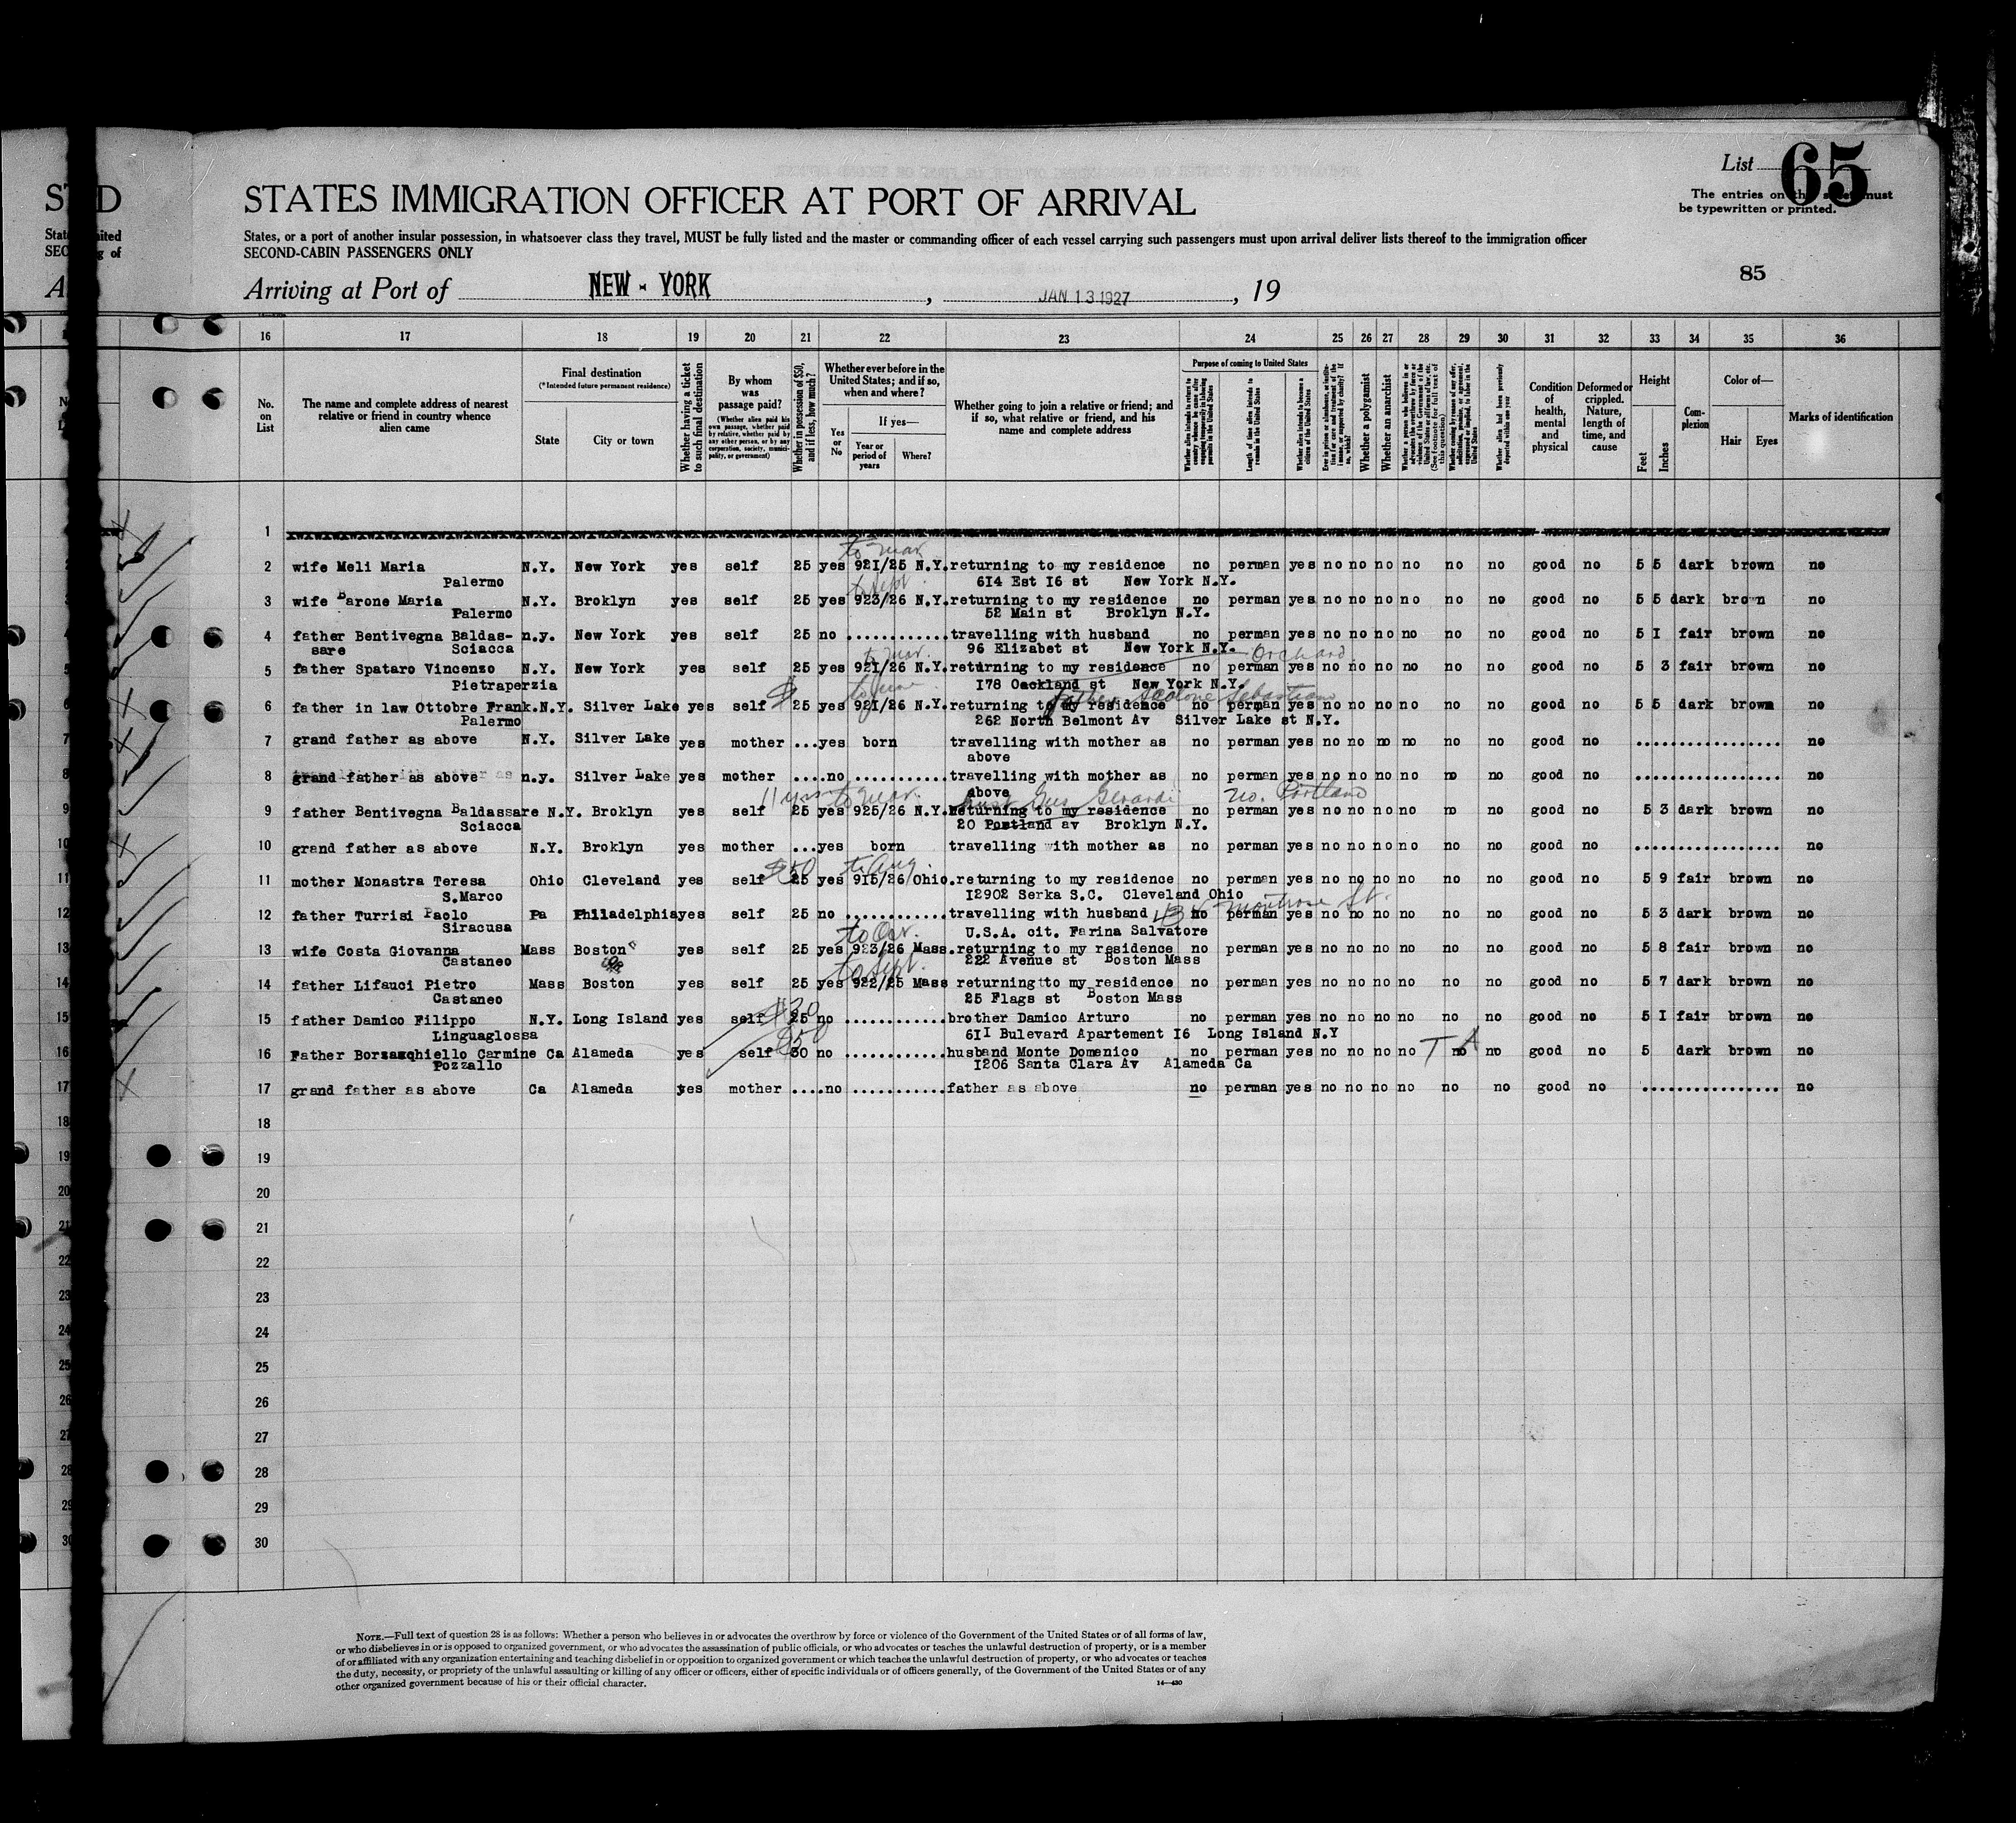 List 65
The entries on this sheet must
be typewritten or printed.
STATES IMMIGRATION OFFICER AT PORT OF ARRIVAL
States, or a port of another insular possession, in whatsoever class they travel, MUST be fully listed and the master or commanding officer of each vessel carrying such passengers must upon arrival deliver lists thereof to the immigration officer
SECOND-CABIN PASSENGERS ONLY
85
Arriving at Port of NEW - YORK , JAN 13 1927 , 19
16 17 18 19 20 21 22 23 24 25 26 27 28 29 30 31 32 33 34 35 36
No. on List
The name and complete address of nearest relative or friend in country whence alien came
Final destination
(*Intended future permanent residence)
State
City or town
Whether having a ticket to such final destination
By whom was passage paid?
(Whether alien paid his own passage, whether paid by relative, whether paid by any other person, or by any corporation, society, municipality, or government)
Whether in possession of $50, and if less, how much?
Whether ever before in the United States; and if so, when and where?
Yes or No
If yes—
Year or period of years
Where?
Whether going to join a relative or friend; and if so, what relative or friend, and his name and complete address
Purpose of coming to United States
Whether alien intends to return to country whence he came after engaging temporarily in laboring pursuits in the United States
Length of time alien intends to remain in the United States
Whether alien intends to become a citizen of the United States
Ever in prison or almshouse, or institution for care and treatment of the insane, or supported by charity? If so, which?
Whether a polygamist
Whether an anarchist
Whether a person who believes in or advocates the overthrow by force or violence of the Government of the United States or all forms of law, etc. (See footnote for full text of this question)
Whether coming by reason of any offer, solicitation, promise, or agreement, expressed or implied, to labor in the United States
Whether alien had been previously deported within one year
Condition of health, mental and physical
Deformed or crippled. Nature, length of time, and cause
Height
Feet
Inches
Complexion
Color of—
Hair
Eyes
Marks of identification
1
to mar
2 wife Meli Maria N.Y. New York yes self 25 yes 921/25 N.Y. returning to my residence no perman yes no no no no no no good no 5 5 dark brown no
Palermo 614 Est 16 st New York N.Y.
to Sept.
3 wife Barone Maria N.Y. Broklyn yes self 25 yes 923/26 N.Y. returning to my residence no perman yes no no no no no no good no 5 5 dark brown no
Palermo 52 Main st Broklyn N.Y.
4 father Bentivegna Baldas- n.y. New York yes self 25 no ............ travelling with husband no perman yes no no no no no no good no 5 I fair brown no
sare Sciacca 96 Elizabet st New York N.Y.
to mar. Orchard
5 father Spataro Vincenzo N.Y. New York yes self 25 yes 921/26 N.Y. returning to my residence no perman yes no no no no no no good no 5 3 fair brown no
Pietraperzia 178 Oackland st New York N.Y.
to June father Sebastiano
6 father in law Ottobre Frank. N.Y. Silver Lake yes self 25 yes 921/26 N.Y. returning to my residence no perman yes no no no no no no good no 5 5 dark brown no
Palermo 262 North Belmont Av Silver Lake st N.Y.
7 grand father as above N.Y. Silver Lake yes mother ... yes born travelling with mother as no perman yes no no no no no no good no .................. no
above
8 grand father as above n.y. Silver Lake yes mother .... no ............ travelling with mother as no perman yes no no no no no no good no .................. no
above
11 yrs to mar. husb Gus Gerardi no. Portland
9 father Bentivegna Baldassare N.Y. Broklyn yes self 25 yes 925/26 N.Y. returning to my residence no perman yes no no no no no no good no 5 3 dark brown no
Sciacca 20 Portland av Broklyn N.Y.
10 grand father as above N.Y. Broklyn yes mother ... yes born travelling with mother as no perman yes no no no no no no good no .................. no
$50 to Aug.
11 mother Monastra Teresa Ohio Cleveland yes self 25 yes 915/26 Ohio. returning to my residence no perman yes no no no no no no good no 5 9 fair brown no
S.Marco 12902 Serka S.C. Cleveland Ohio
Montrose St.
12 father Turrisi Paolo Pa Philadelphia yes self 25 no ............ travelling with husband no perman yes no no no no no no good no 5 3 dark brown no
Siracusa U.S.A. cit. Farina Salvatore
to Oct.
13 wife Costa Giovanna Mass Boston yes self 25 yes 923/26 Mass. returning to my residence no perman yes no no no no no no good no 5 8 fair brown no
Castaneo 222 Avenue st Boston Mass
to Sept.
14 father Lifauci Pietro Mass Boston yes self 25 yes 922/25 Mass returning to my residence no perman yes no no no no no no good no 5 7 dark brown no
Castaneo 25 Flags st Boston Mass
$30
15 father Damico Filippo N.Y. Long Island yes self 25 no ............ brother Damico Arturo no perman yes no no no no no no good no 5 I fair brown no
Linguaglossa 6II Bulevard Apartement 16 Long Island N.Y
$50 T A
16 Father Borzazqhiello Carmine Ca Alameda yes self 30 no ............ husband Monte Domenico no perman yes no no no no no no good no 5 dark brown no
Pozzallo 1206 Santa Clara Av Alameda Ca
17 grand father as above Ca Alameda yes mother .... no ............ father as above no perman yes no no no no no no good no .................. no
18
19
20
21
22
23
24
25
26
27
28
29
30
NOTE.—Full text of question 28 is as follows: Whether a person who believes in or advocates the overthrow by force or violence of the Government of the United States or of all forms of law,
or who disbelieves in or is opposed to organized government, or who advocates the assassination of public officials, or who advocates or teaches the unlawful destruction of property, or is a member
of or affiliated with any organization entertaining and teaching disbelief in or opposition to organized government or which teaches the unlawful destruction of property, or who advocates or teaches
the duty, necessity, or propriety of the unlawful assaulting or killing of any officer or officers, either of specific individuals or of officers generally, of the Government of the United States or of any
other organized government because of his or their official character.
14—430